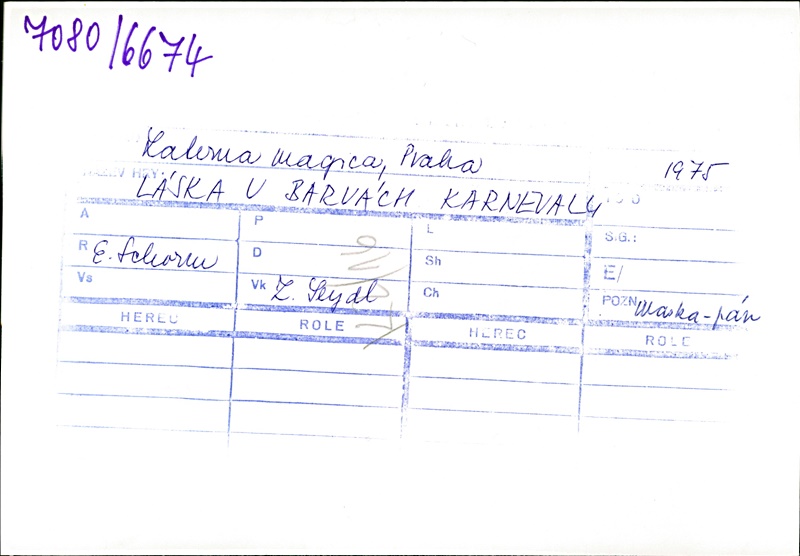 7080/6674
Laterna magica, Praha 1975
NÁZEV HRY:
LÁSKA V BARVÁCH KARNEVALU
A P L SIG.:
R E. Schorm D Sh E/
Vs Vk Z. Seydl Ch POZN.: Maska-pán
HEREC ROLE HEREC ROLE